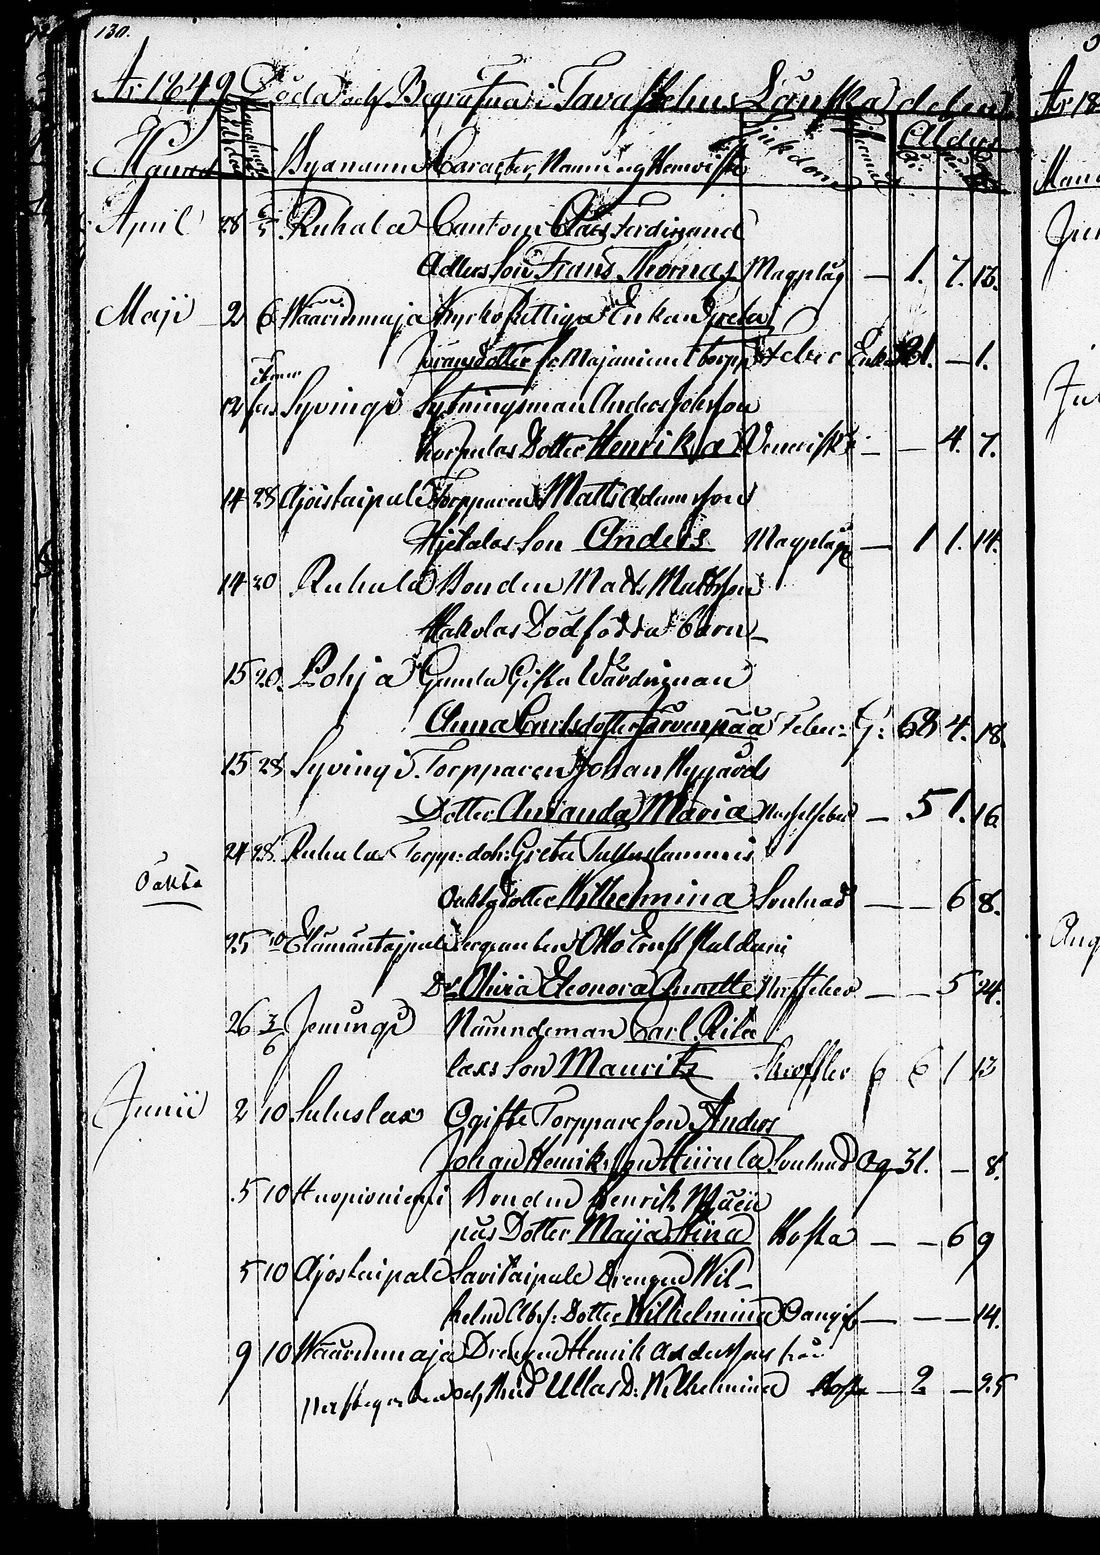 130.
År 1849 Döda och Begrafna i Tavastehus Länska delen
Månad Byanamn Caracter, Namn och Hemvist Sjukdom Ålder
April 28 6/5 Ruhala Cantorn Claes Ferdinand
Adlers Son Frans Thomas Magplåg — 1. 7. 13.
Maji 2 6 Wäärinmaja Kyrkofattiga Enkan Greta
Göransdotter fr. Majaniemi torp Feber Enka 81. — 1.
12 Syvingi Sytningsman Anders Johsson
Korpulas Dotter Henrika — — 4. 7.
14 28 Ajostaipale Torpparen Matts Adamsson
Hjetalas Son Anders Magplåg — 1 1. 14.
14 20 Ruhala Bonden Matts Mattsson
Hakolas Dödfödda barn
15 20. Pohja Gamla Gifta Värdinnan
Anna Carlsdotter Järvenpää Feber G: 68 4. 18.
15 28 Syvingi Torpparen Johan Nygårds
Dotter Amanda Maria — 5 1. 16
24 28. Ruhala Torp: dot: Greta
Oakta dotter Wilhelmina — — 6 8.
Oäkta
25 10 Elämäntajpale Sergeanten Otto Ernst Paldani
Dr. Olivia Eleonora Annette — — 5 24.
26 3/6 Jeminqi Nämndeman Carl Rita
laxs Son Mauritz 6 6 1 13
Junii 2 10 Suluslax Ogifte Torppare Son Anders
Johan Henriksson Hiirula Og 31. — 8.
5 10 Kuopioniemi Bonden Henrik
pus Dotter Maija Stina Hosta — — 6 9
5 10 Ajostaipale Savitaipale Drengen Wil-
helm Abr: Dotter Wilhelmina — — — 14.
9 10 Wäärinmaja Drengen Henrik Anderssons
och Ullas D: Wilhelmina Hosta — 2 — 25